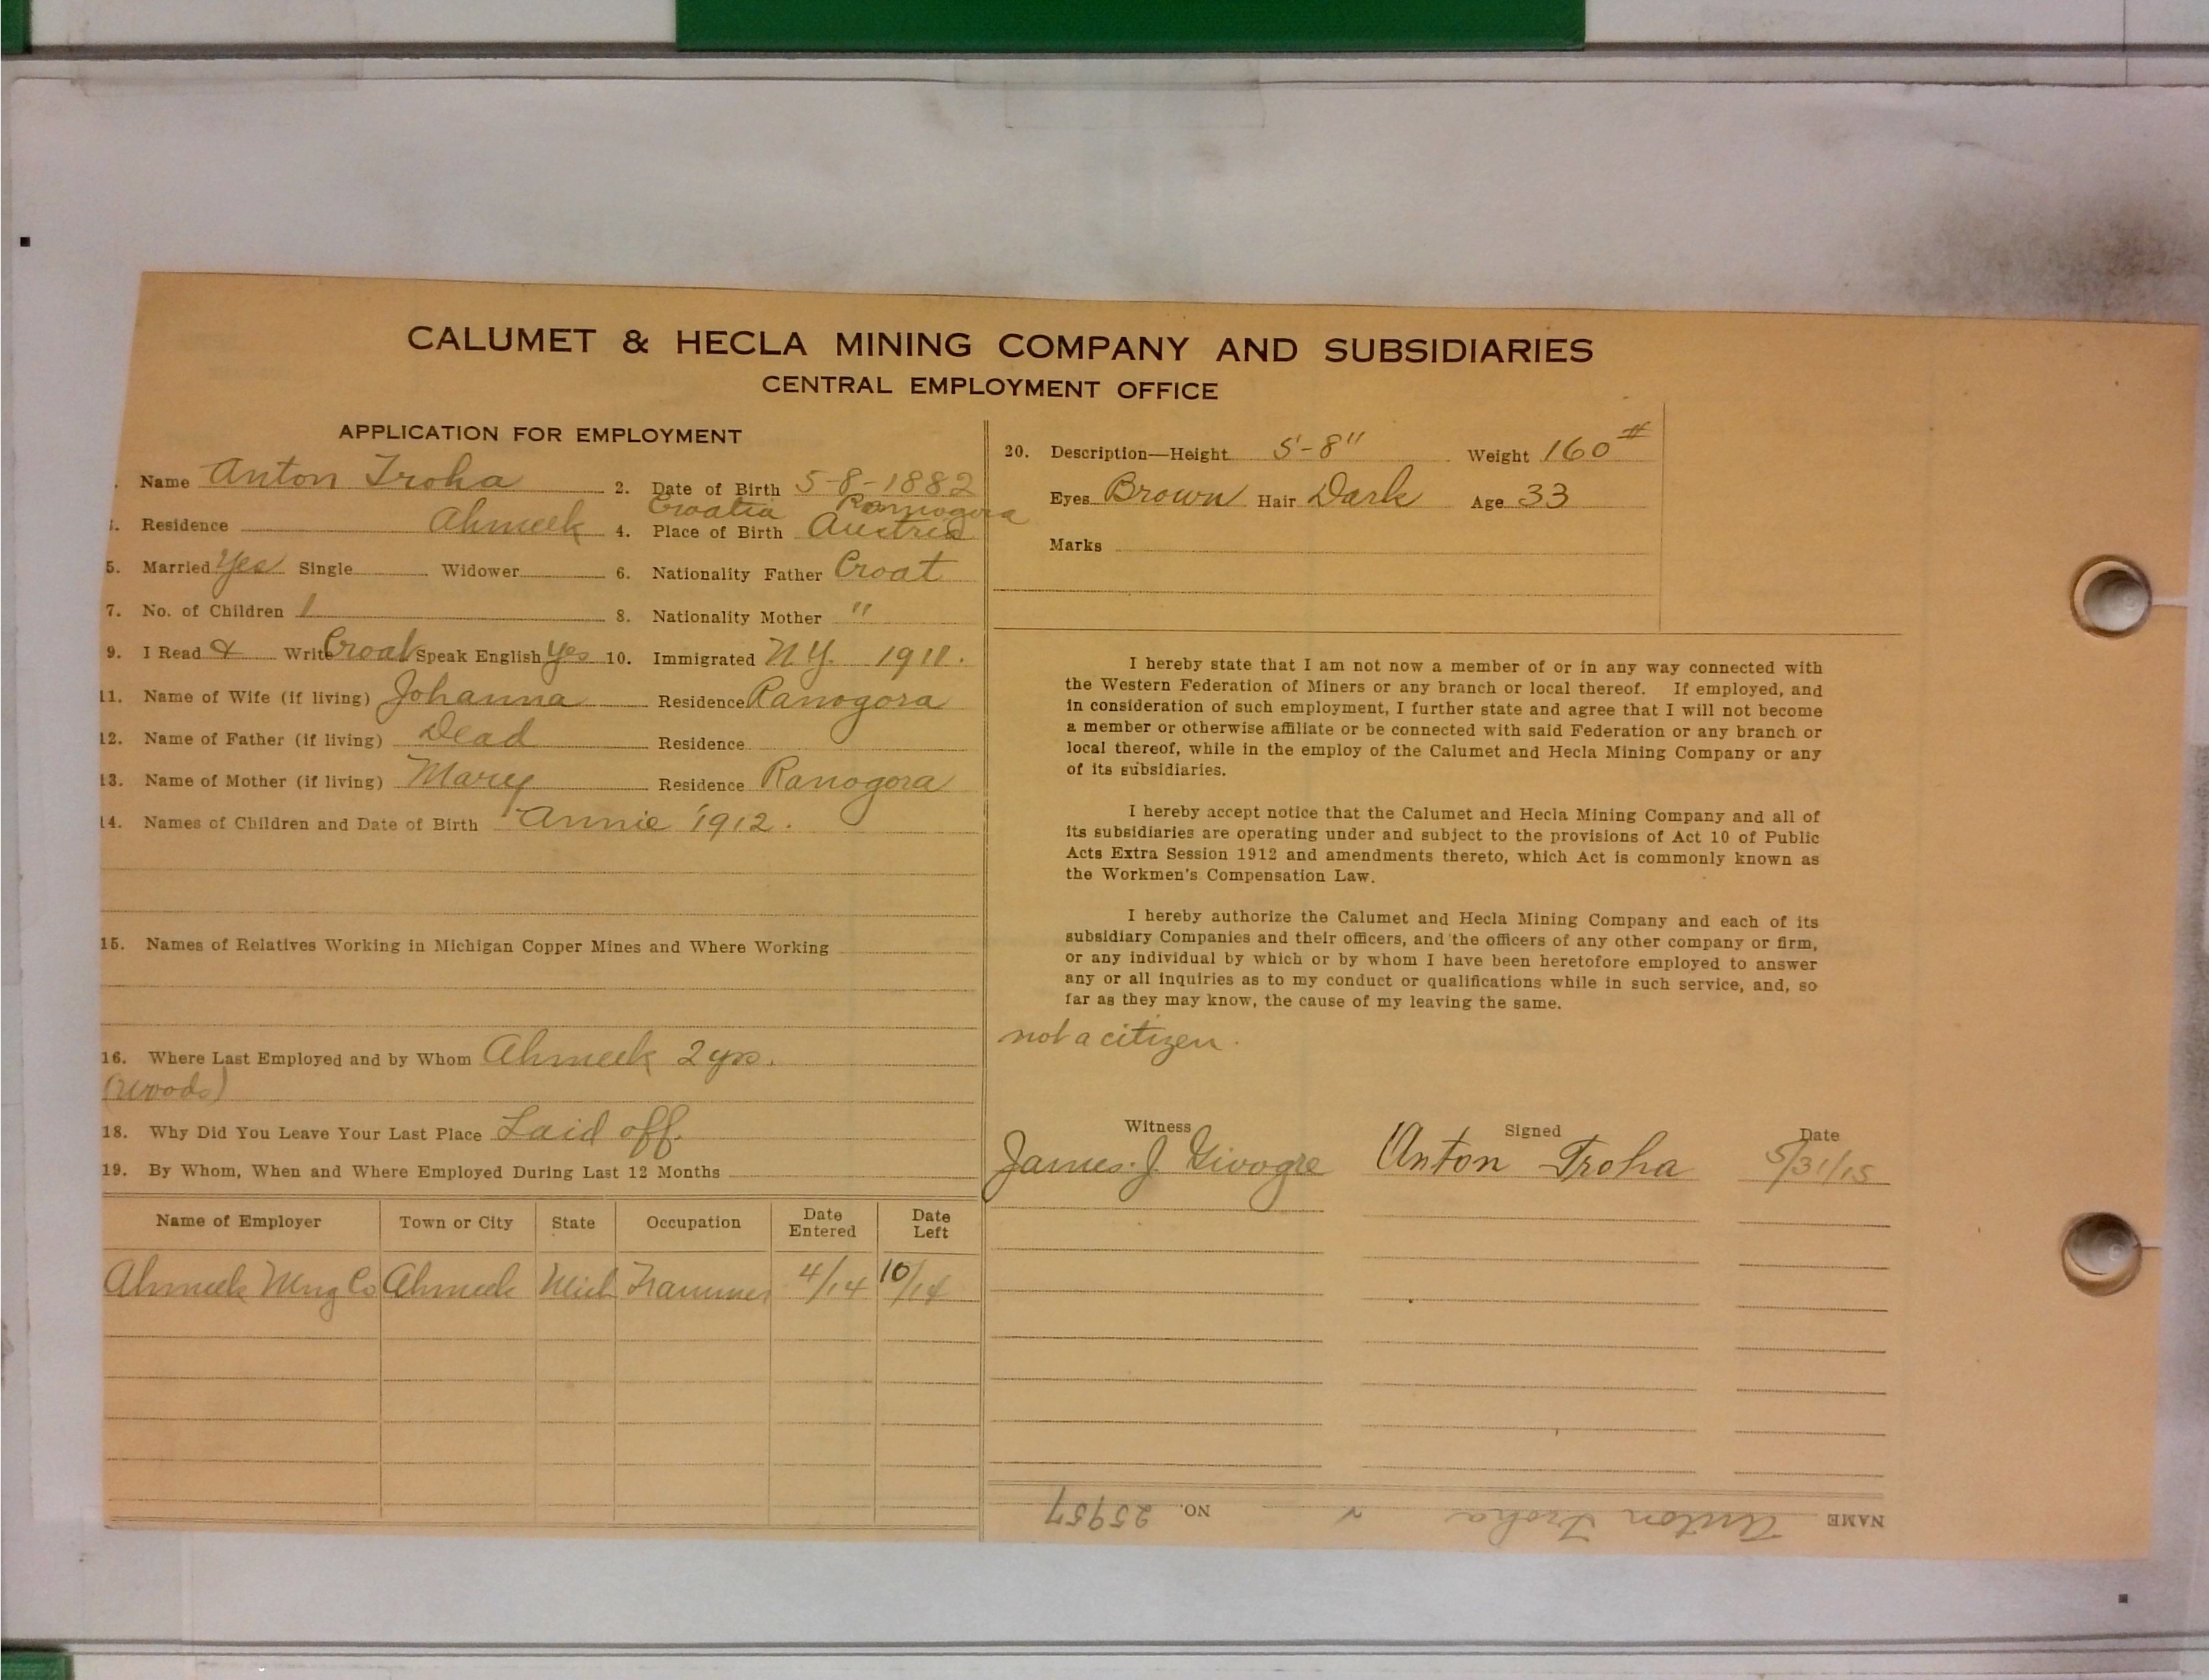 CALUMET & HECLA MINING COMPANY AND SUBSIDIARIES
CENTRAL EMPLOYMENT OFFICE
APPLICATION FOR EMPLOYMENT
. Name Anton Troha 2. Date of Birth 5-8-1882
Croatia Ranogora
3. Residence Ahmeek 4. Place of Birth Austria
5. Married Yes Single Widower 6. Nationality Father Croat
7. No. of Children 1 8. Nationality Mother "
9. I Read & Write Croat Speak English Yes 10. Immigrated N.Y. 1911.
11. Name of Wife (if living) Johanna Residence Ranogora
12. Name of Father (if living) Dead Residence
13. Name of Mother (if living) Mary Residence Ranogora
14. Names of Children and Date of Birth Annie 1912.
15. Names of Relatives Working in Michigan Copper Mines and Where Working
16. Where Last Employed and by Whom Ahmeek 2 yrs.
(Woods)
18. Why Did You Leave Your Last Place Laid off.
19. By Whom, When and Where Employed During Last 12 Months
Name of Employer Town or City State Occupation Date Entered Date Left
Ahmeek Mng Co Ahmeek Mich Trammer 4/14 10/14
20. Description—Height 5'-8" Weight 160#
Eyes Brown Hair Dark Age 33
Marks
I hereby state that I am not now a member of or in any way connected with
the Western Federation of Miners or any branch or local thereof. If employed, and
in consideration of such employment, I further state and agree that I will not become
a member or otherwise affiliate or be connected with said Federation or any branch or
local thereof, while in the employ of the Calumet and Hecla Mining Company or any
of its subsidiaries.
I hereby accept notice that the Calumet and Hecla Mining Company and all of
its subsidiaries are operating under and subject to the provisions of Act 10 of Public
Acts Extra Session 1912 and amendments thereto, which Act is commonly known as
the Workmen's Compensation Law.
I hereby authorize the Calumet and Hecla Mining Company and each of its
subsidiary Companies and their officers, and the officers of any other company or firm,
or any individual by which or by whom I have been heretofore employed to answer
any or all inquiries as to my conduct or qualifications while in such service, and, so
far as they may know, the cause of my leaving the same.
not a citizen.
Witness Signed Date
James J. Anton Troha 5/31/15
NAME Anton Troha NO. 25957